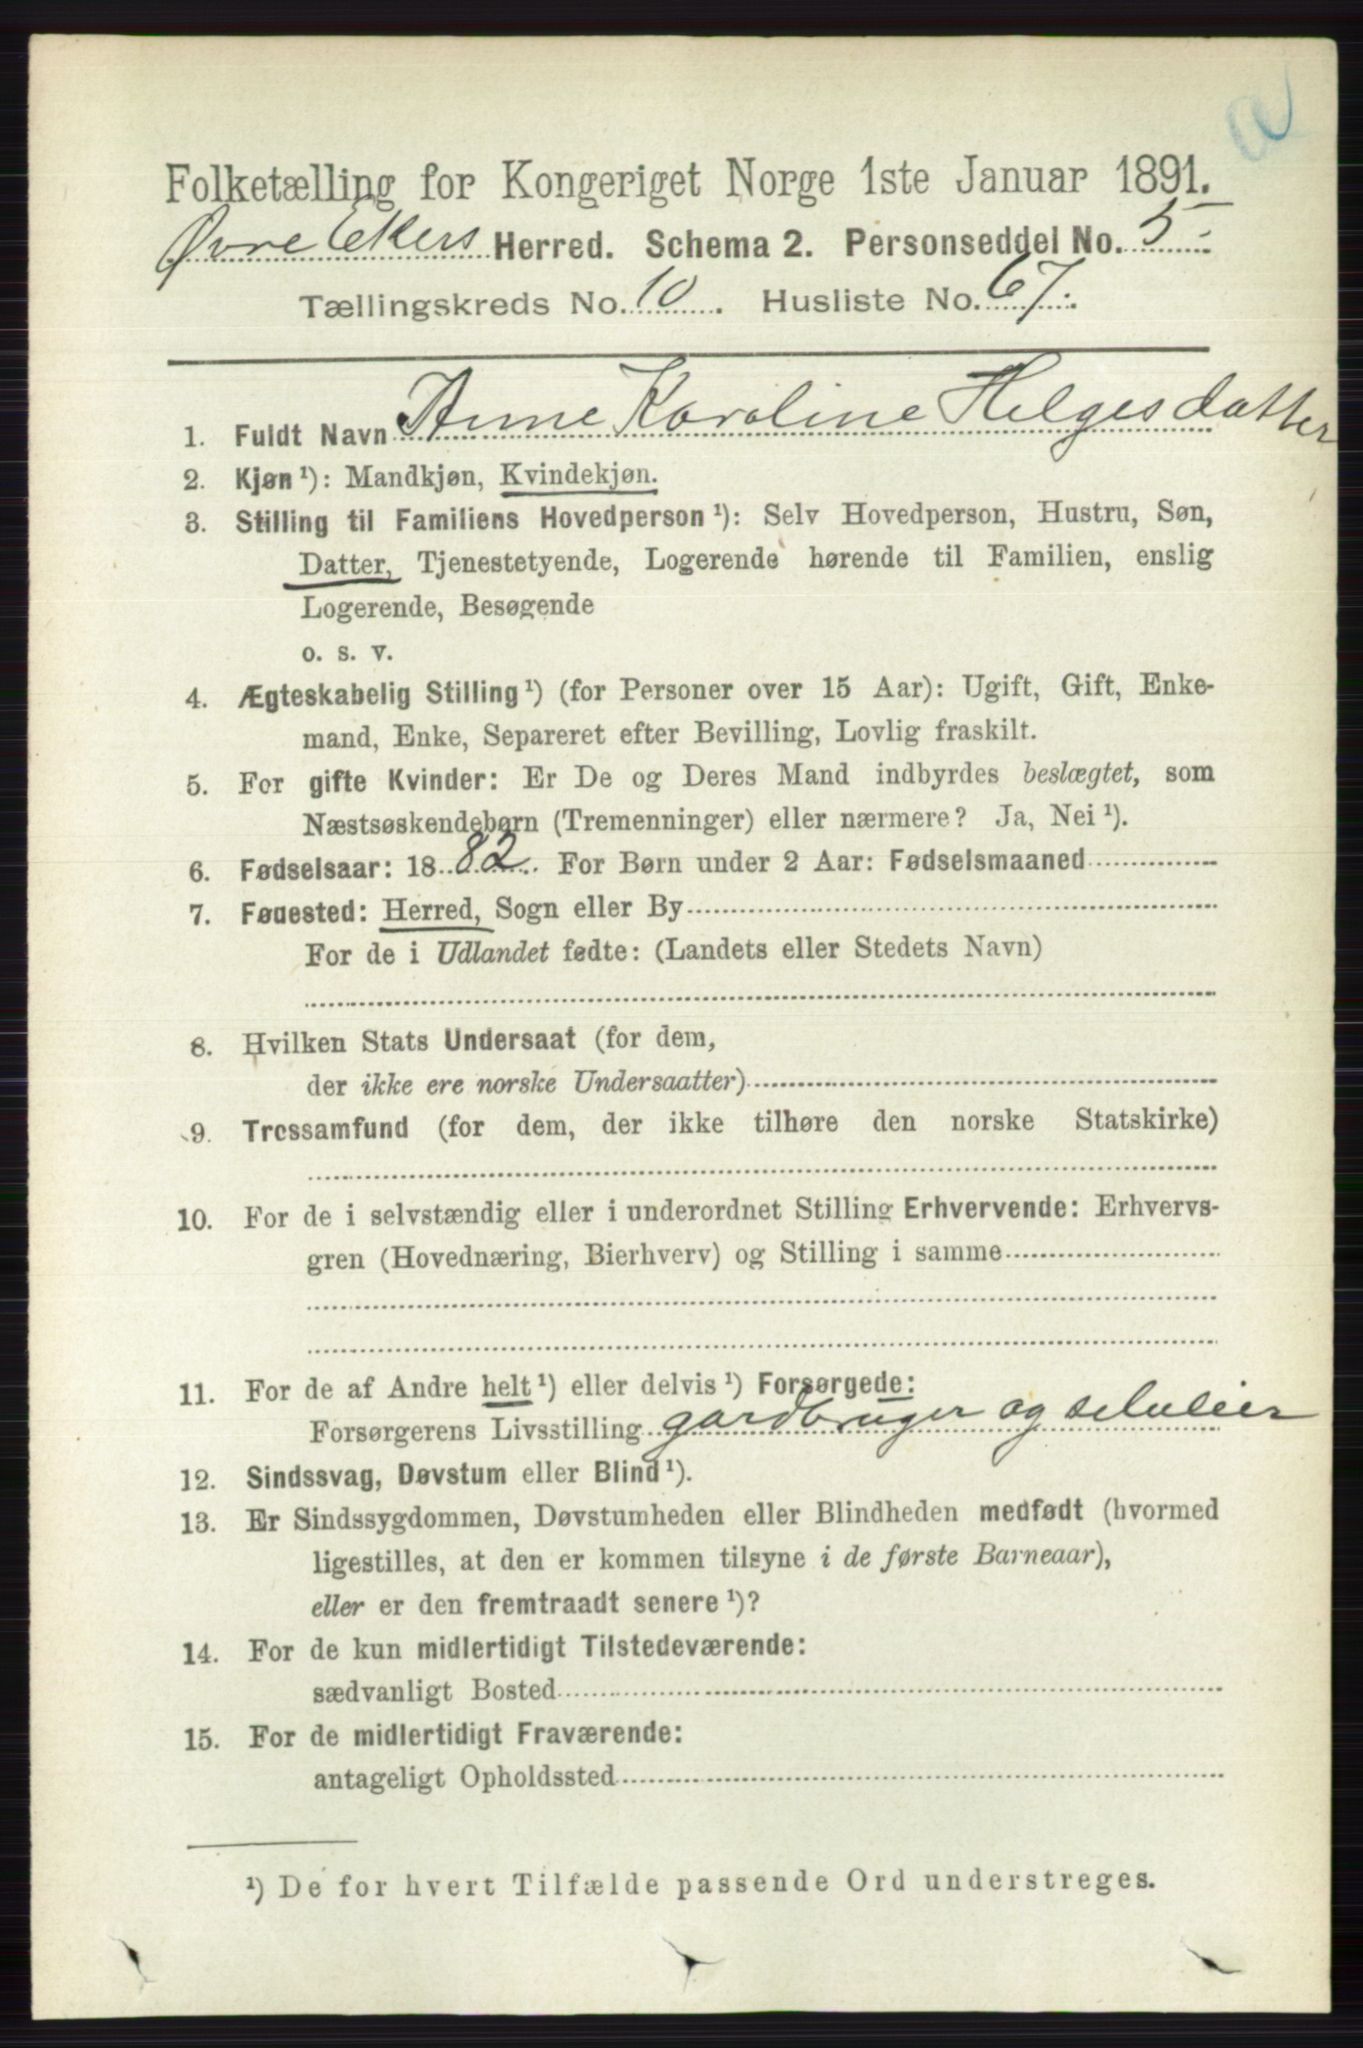 a
Folketælling for Kongeriget Norge 1ste Januar 1891.
Øvre Ekers Herred. Schema 2. Personseddel No. 5
Tællingskreds No. 10. Husliste No. 67.
1. Fuldt Navn Anne Karoline Helgesdatter
2. Kjøn ¹): Mandkjøn, Kvindekjøn.
3. Stilling til Familiens Hovedperson ¹): Selv Hovedperson, Hustru, Søn,
Datter, Tjenestetyende, Logerende hørende til Familien, enslig
Logerende, Besøgende
o. s. v.
4. Ægteskabelig Stilling ¹) (for Personer over 15 Aar): Ugift, Gift, Enke-
mand, Enke, Separeret efter Bevilling, Lovlig fraskilt.
5. For gifte Kvinder: Er De og Deres Mand indbyrdes beslægtet, som
Næstsøskendebørn (Tremenninger) eller nærmere? Ja, Nei ¹).
6. Fødselsaar: 1882. For Børn under 2 Aar: Fødselsmaaned
7. Fødested: Herred, Sogn eller By
For de i Udlandet fødte: (Landets eller Stedets Navn)
8. Hvilken Stats Undersaat (for dem,
der ikke ere norske Undersaatter)
9. Trossamfund (for dem, der ikke tilhøre den norske Statskirke)
10. For de i selvstændig eller i underordnet Stilling Erhvervende: Erhvervs-
gren (Hovednæring, Bierhverv) og Stilling i samme
11. For de af Andre helt ¹) eller delvis ¹) Forsørgede:
Forsørgerens Livsstilling gardbruger og selveier
12. Sindssvag, Døvstum eller Blind ¹).
13. Er Sindssygdommen, Døvstumheden eller Blindheden medfødt (hvormed
ligestilles, at den er kommen tilsyne i de første Barneaar),
eller er den fremtraadt senere ¹)?
14. For de kun midlertidigt Tilstedeværende:
sædvanligt Bosted
15. For de midlertidigt Fraværende:
antageligt Opholdssted
¹) De for hvert Tilfælde passende Ord understreges.